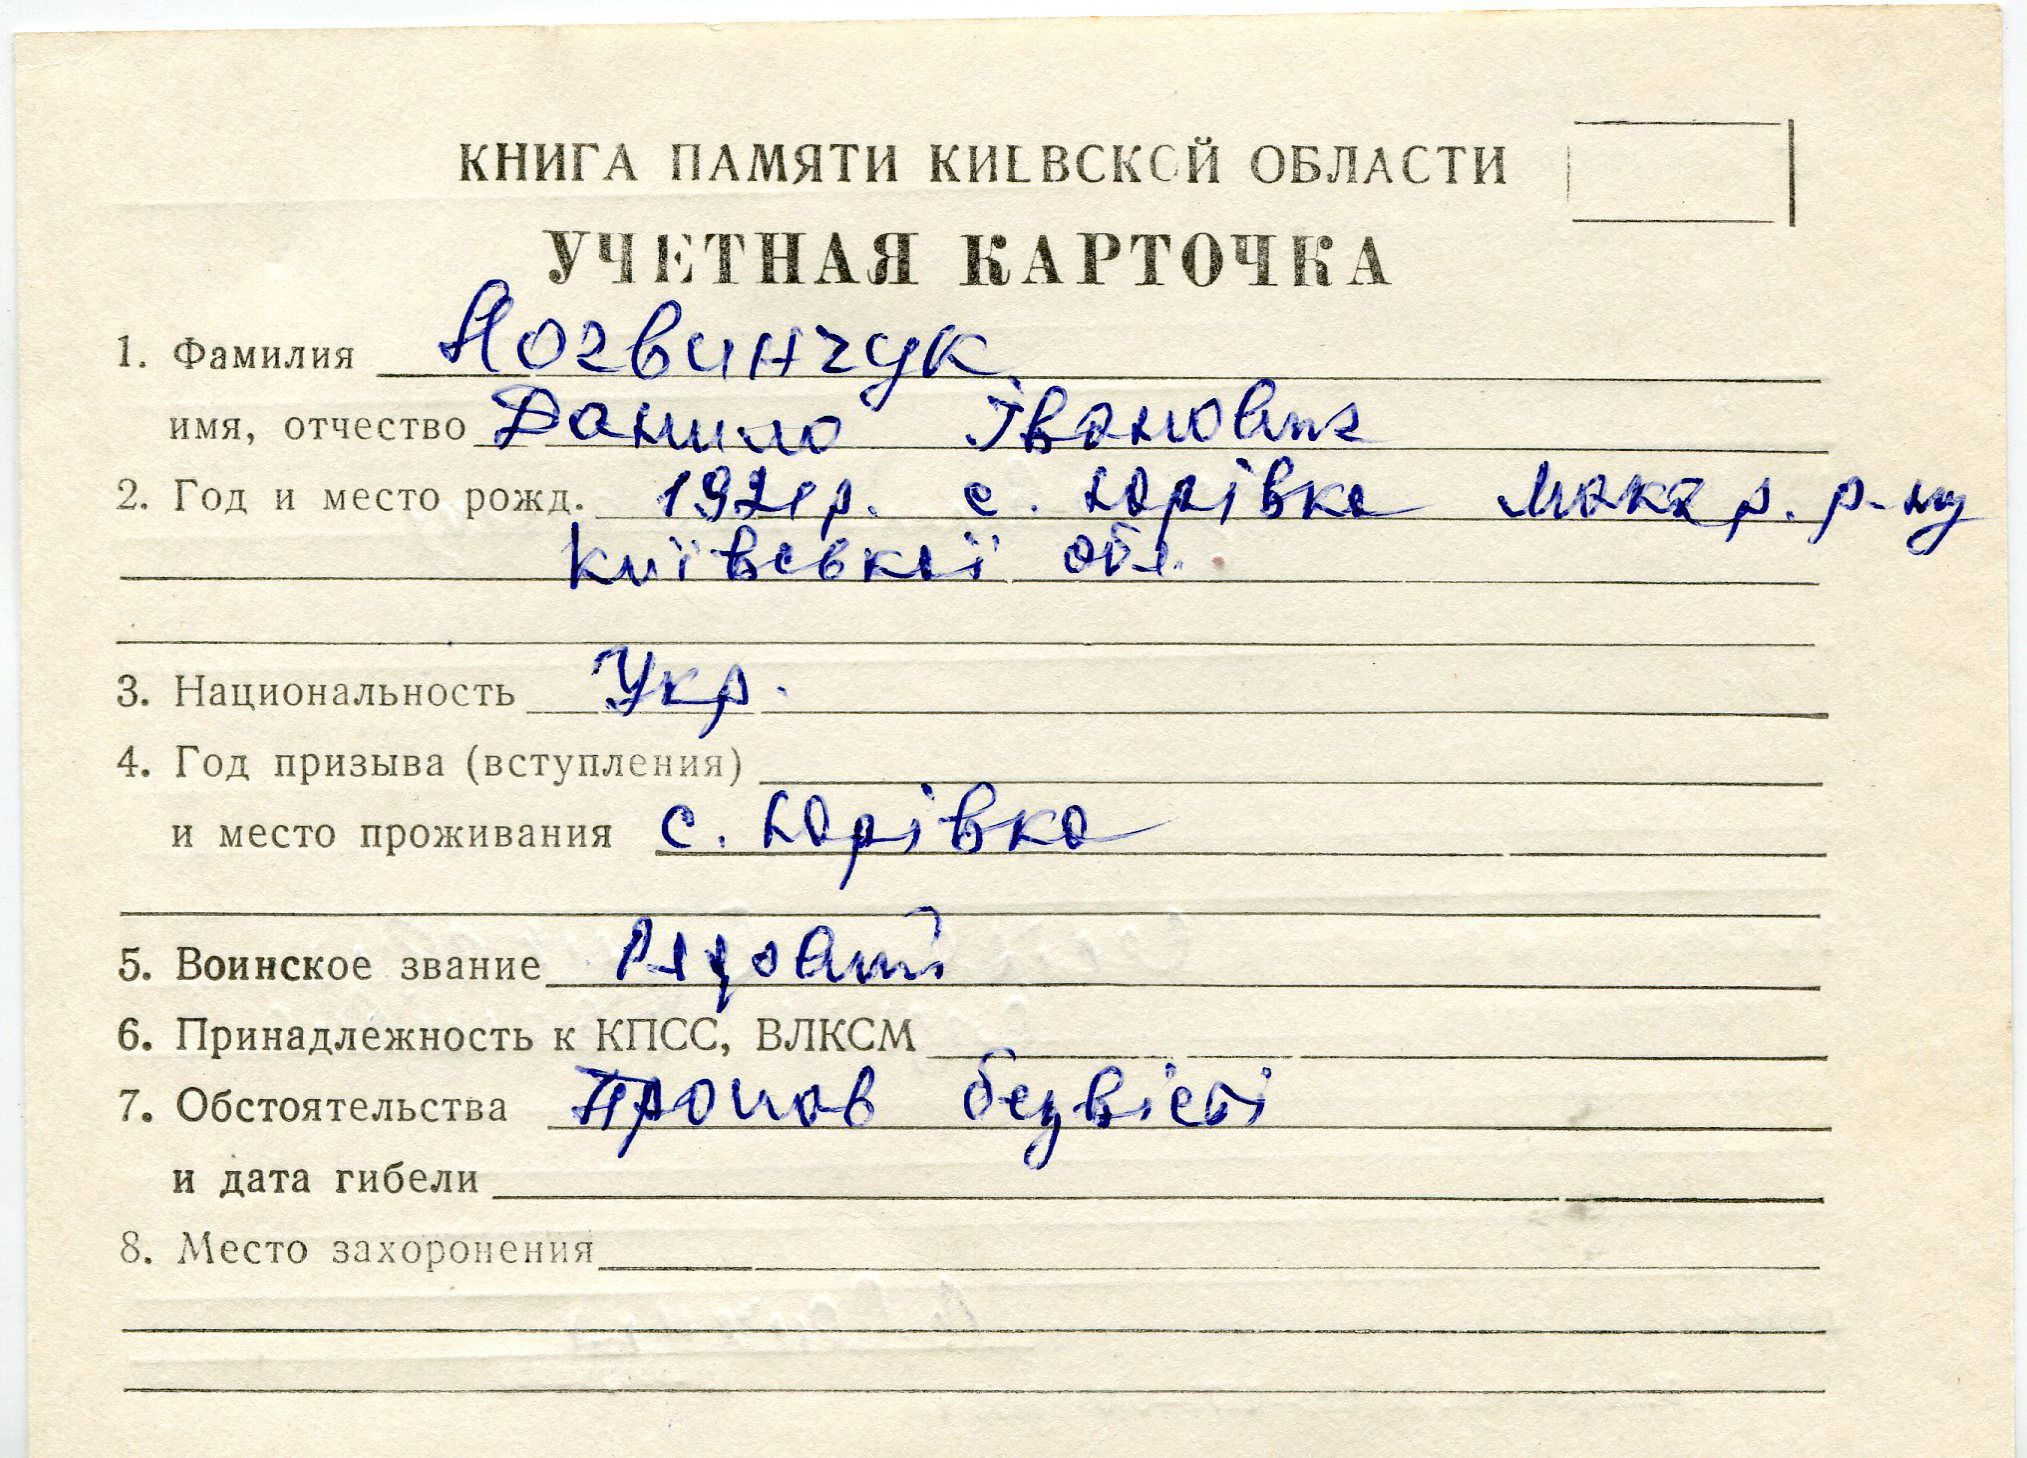 КНИГА ПАМЯТИ КИЕВСКОЙ ОБЛАСТИ
УЧЕТНАЯ КАРТОЧКА
1. Фамилия Логвинчук
имя, отчество Данило Іванович
2. Год и место рожд. 1921р. с. Юрівка Макар. р-ну
Київської обл.
3. Национальность Укр.
4. Год призыва (вступления)
и место проживания с. Юрівка
5. Воинское звание Рядовий
6. Принадлежность к КПСС, ВЛКСМ
7. Обстоятельства Пропав безвісті
и дата гибели
8. Место захоронения